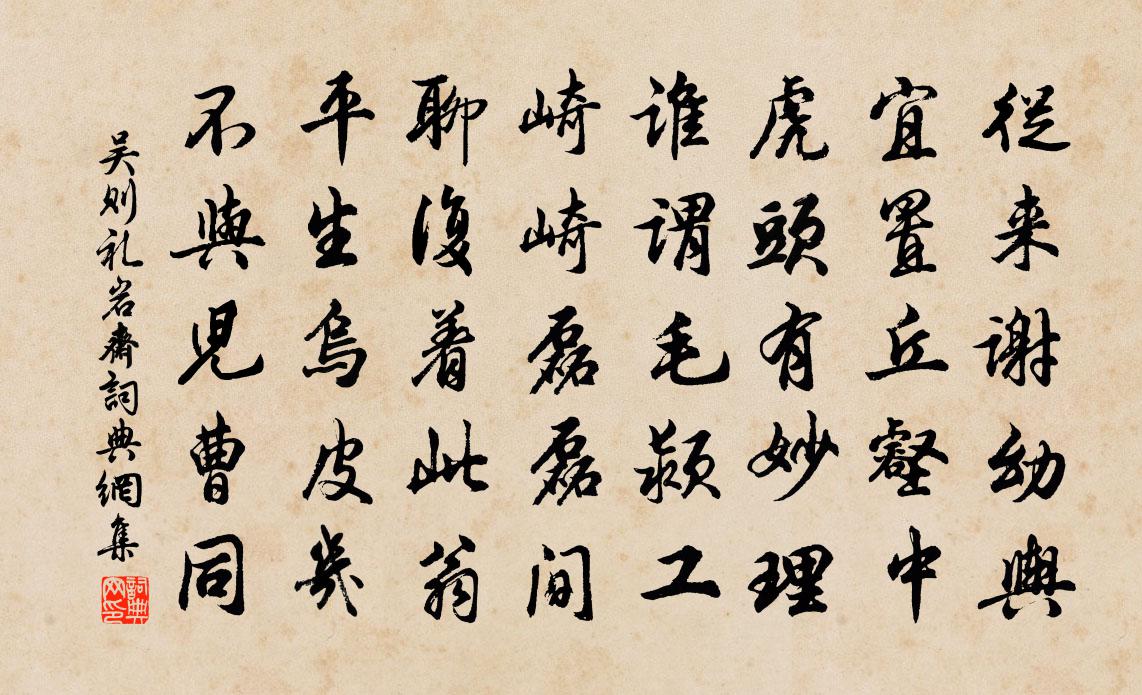 從来謝幼輿
宜置丘壑中
虎頭有妙理
誰謂毛穎工
崎崎磊磊間
聊復着此翁
平生烏皮几
不與児曹同
吳則礼岩齋詞典網集
詞典網印